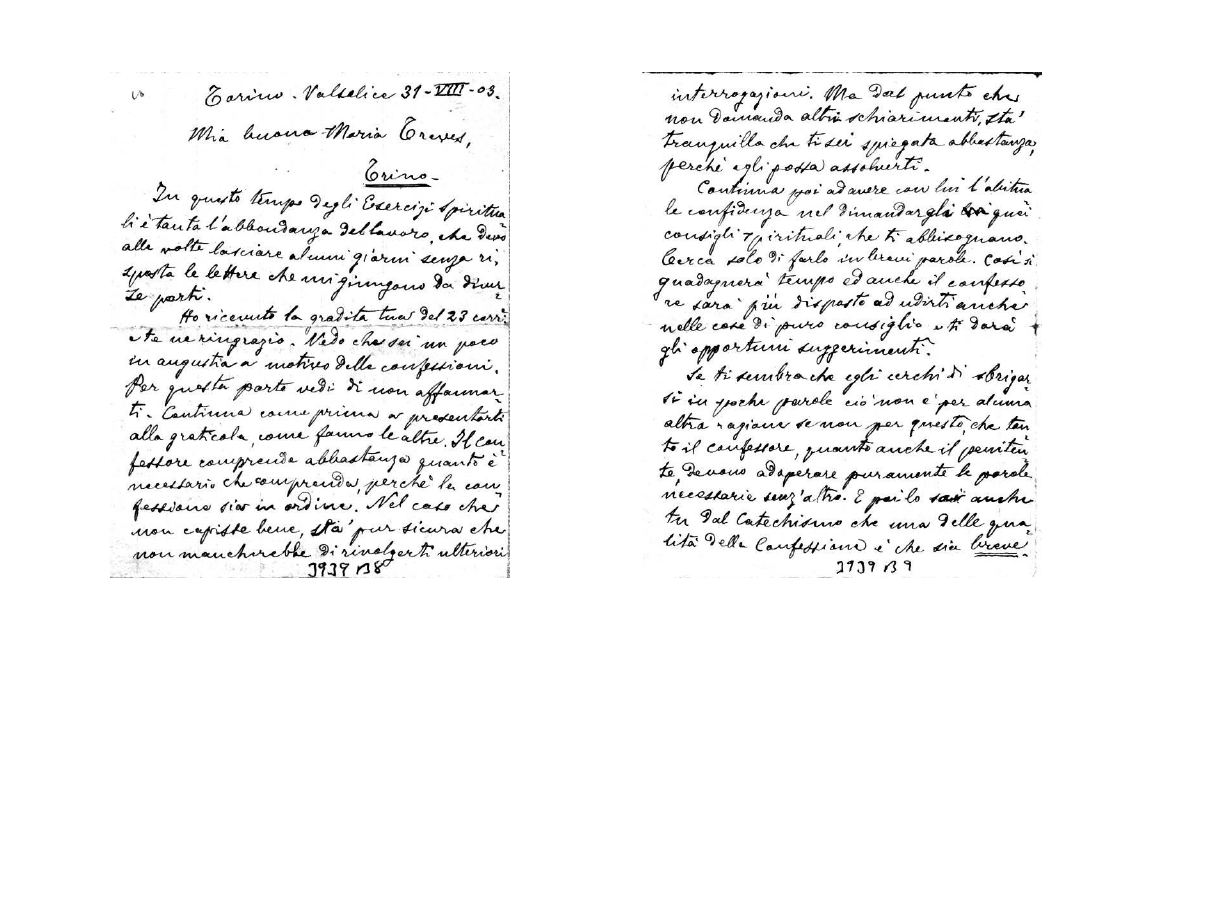 Torino - Valsalice 31-VIII-03.
Mia buona Maria Treves,
Trino-
In questo tempo degli Esercizi Spiritua=
li è tanta l'abbondanza del lavoro, che devo
alle volte lasciare alcuni giorni senza ri,
sposta le lettere che mi giungono da diver=
se parti.
Ho ricevuto la gradita tua del 23 corr:
e te ne ringrazio. Vedo che sei un poco
in angustia a motivo delle confessioni.
Per questa parte vedi di non affannar=
ti. Continua come prima a presentarti
alla graticola, come fanno le altre. Il con=
fessore comprende abbastanza quanto è
necessario che comprenda, perchè la con=
fessione sia in ordine. Nel caso che
non capisse bene, sta' pur sicura che
non mancherebbe di rivolgerti ulteriori
3939 B8
interrogazioni. Ma dal punto che
non domanda altri schiarimenti, sta'
tranquilla che ti sei spiegata abbastanza,
perchè egli possa assolverti.
Continua poi ad avere con lui l'abitua
le confidenza nel dimandargli quei
consigli spirituali, che ti abbisognano.
Cerca solo di farlo in brevi parole. Così si
guadagnerà tempo ed anche il confesso
re sarà più disposto ad udirti anche
nelle cose di puro consiglio e ti darà
gli opportuni suggerimenti.
Se ti sembra che egli cerchi di sbrigar=
si in poche parole ciò non è per alcuna
altra ragione se non per questo, che tan=
to il confessore, quanto anche il peniten=
te, devono adoperare puramente le parole
necessarie senz'altro. E poi lo sai anche
tu dal Catechismo che una delle qua=
lità della Confessione è che sia breve.
3939 B9